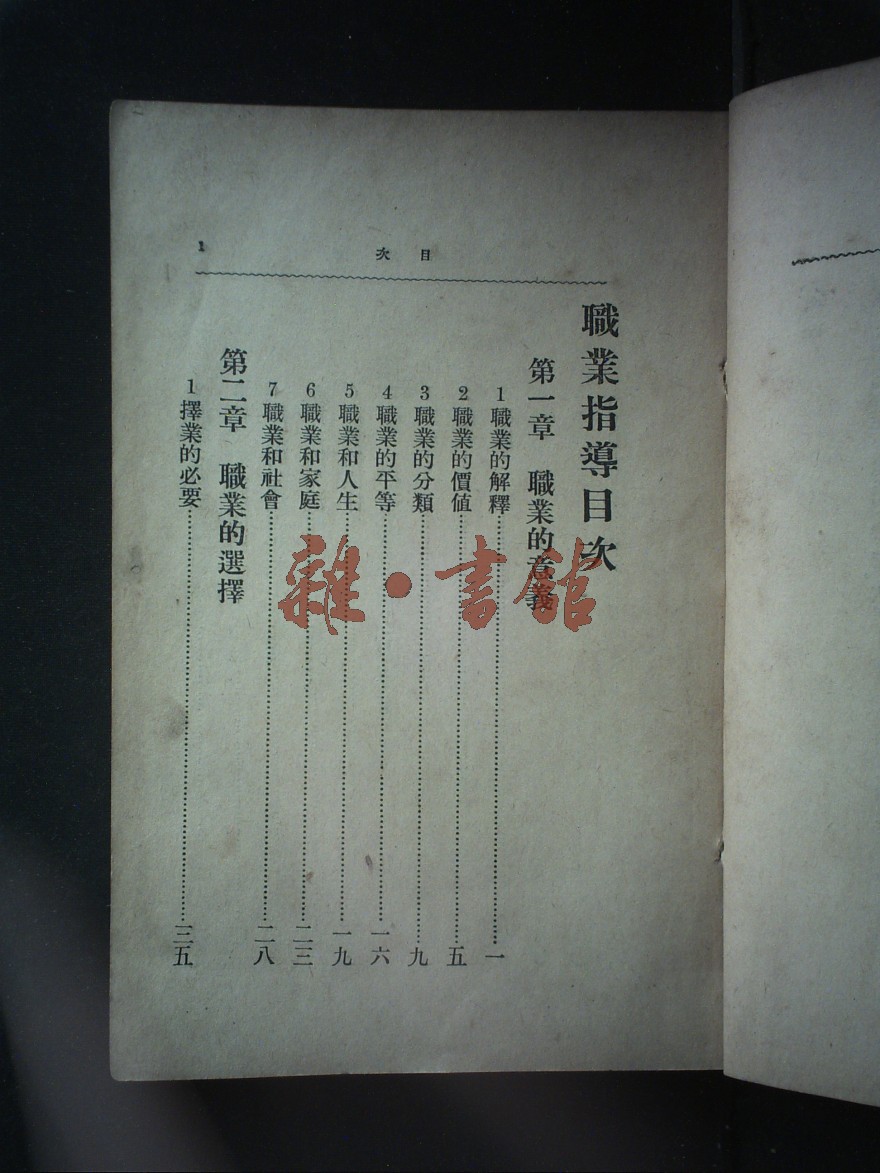 目次
1
職業指導目次
第一章 職業的意義
1 職業的解釋……一
2 職業的價值……五
3 職業的分類……九
4 職業的平等……一六
5 職業和人生……一九
6 職業和家庭……二三
7 職業和社會……二八
第二章 職業的選擇
1 擇業的必要……三五
雜·書館